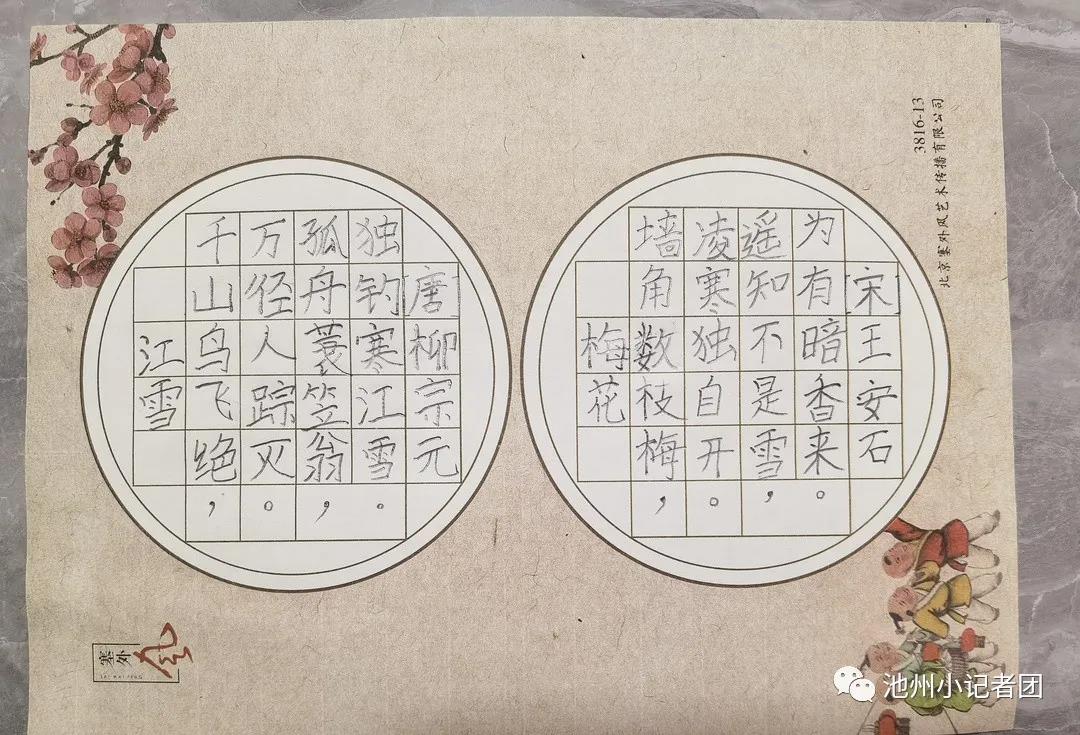 江雪
千山鸟飞绝，
万径人踪灭。
孤舟蓑笠翁，
独钓寒江雪。
[唐]柳宗元
梅花
墙角数枝梅，
凌寒独自开。
遥知不是雪，
为有暗香来。
[宋]王安石
3816-13
北京塞外风艺术传播有限公司
塞外风
SAI WAI FENG
池州小记者团